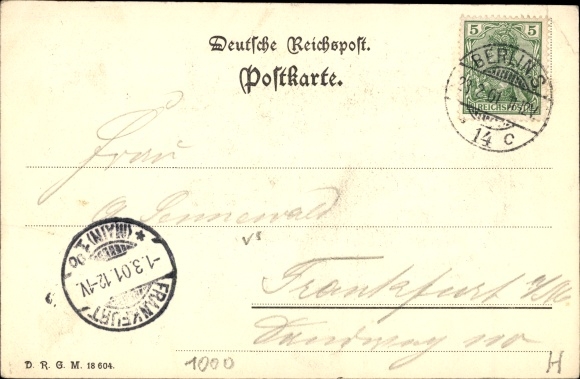 Deutsche Reichspost.
Postkarte.
5 5
REICHSPOST
BERLIN S
14 c
Frau
Sennewald
vs
Frankfurt a/M.
Sandweg
FRANKFURT (MAIN) 1
-1.3.01.12-1V.
D. R. G. M. 18 604.
1000
H